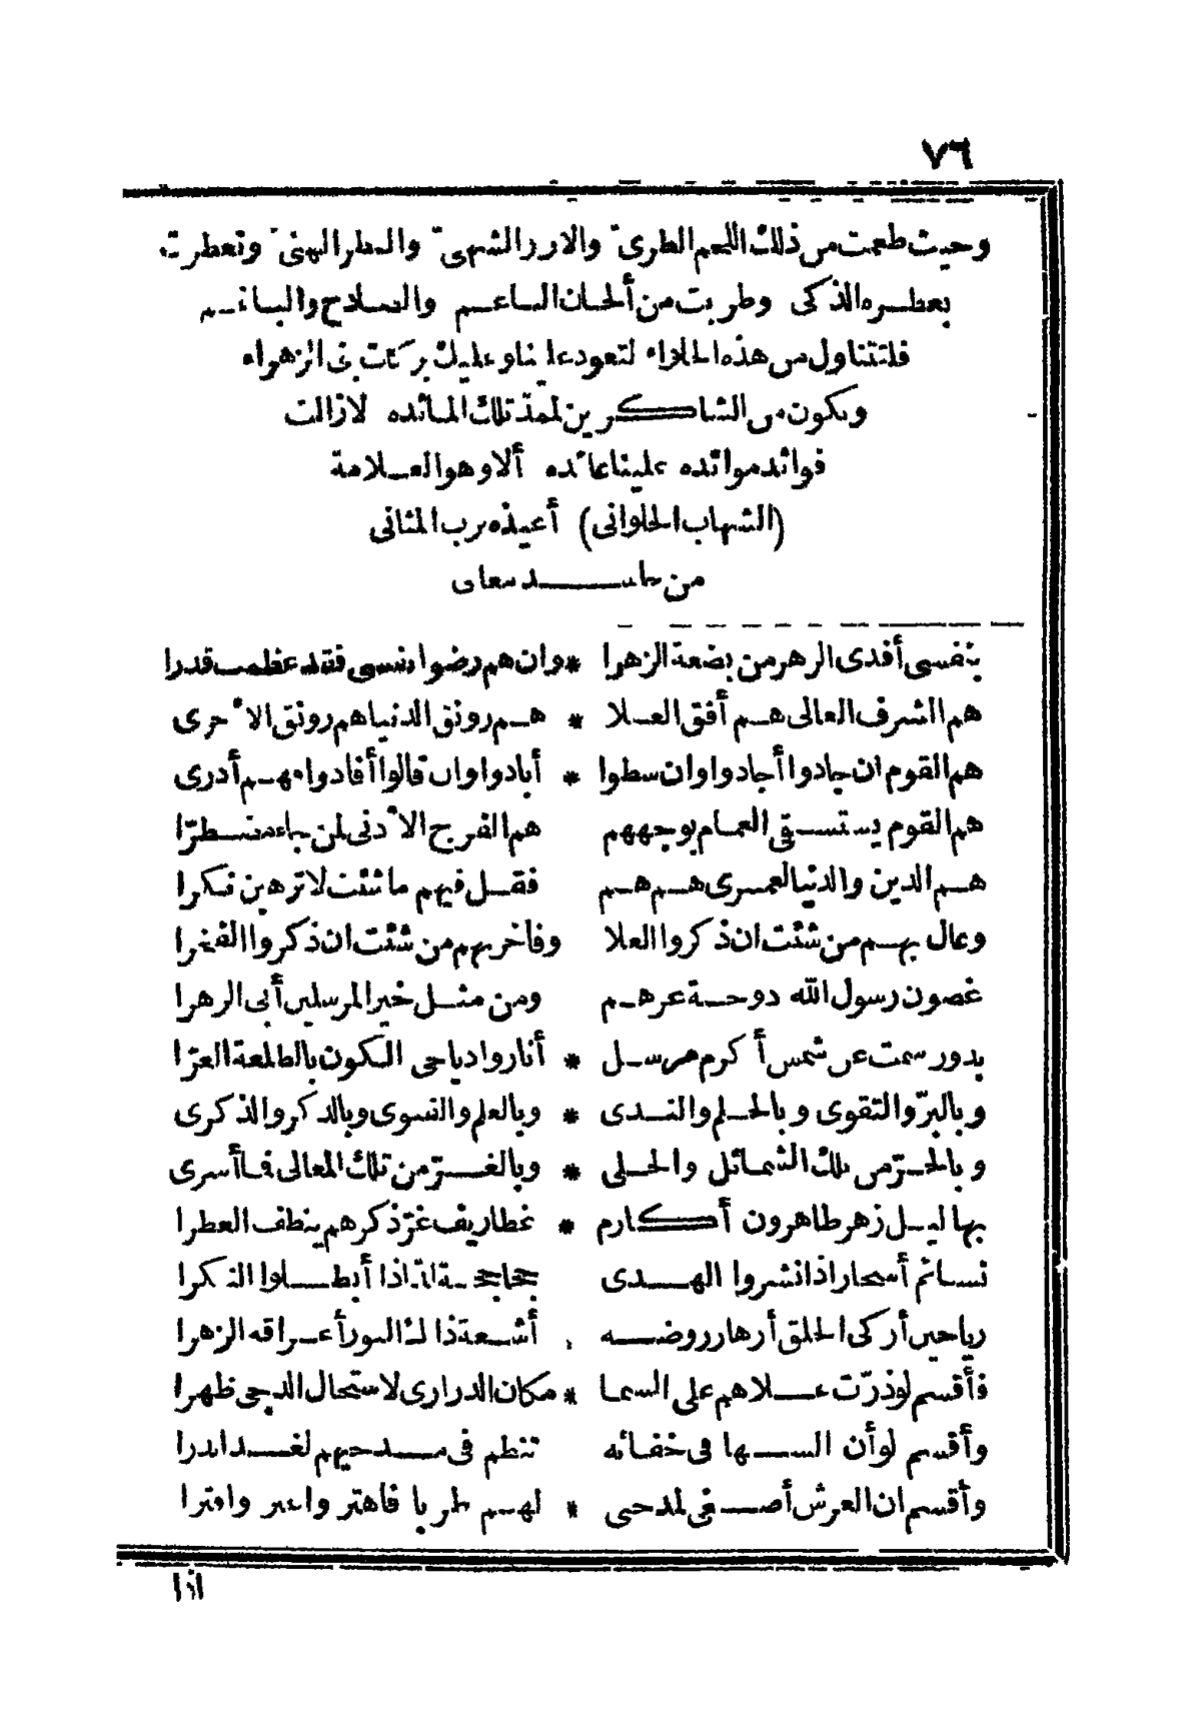 ٧٦
وحيث طعمت من ذلك اللحم الطرى والارز الشهى والمنظر البهى وتعطرت
بعطره الذكى وطربت من ألحان الساعم والصادح والباغم
فلتتناول من هذه الحلواء لتعود علينا وعليك بركات بنى الزهراء
ونكون من الشاكرين لممدّ تلك المائده لازالت
فوائد موائده علينا عائده ألا وهو العلامة
(الشهاب الحلوانى) أعيذه برب المثانى
من حاسد معانى
بنفسى أفدى الزهر من بضعة الزهرا * وان هم رضوا بنفسى فقد عظمت قدرا
هم الشرف العالى هم أفق العلا * هم رونق الدنيا هم رونق الأخرى
هم القوم ان جادوا أجادوا وان سطوا * أبادوا وان قالوا أفادوا بهم أدرى
هم القوم يستسقى الغمام بوجههم هم الفرج الأدنى لمن جاء مضطرّا
هم الدين والدنيا لعمرى هم هم فقل فيهم ما شئت لا ترهبن نكرا
وعال بهم من شئت ان ذكروا العلا وفاخر بهم من شئت ان ذكروا الفخرا
غصون رسول الله دوحة عزهم ومن مثل خير المرسلين أبى الزهرا
بدور سمت عن شمس أكرم مرسل * أناروا دياجى الكون بالطلعة الغرّا
وبالبرّ والتقوى وبالحلم والندى * وبالعلم والفتوى وبالذكر والذكرى
وبالحرّ من تلك الشمائل والحلى * وبالغرّ من تلك المعالى فما أسرى
بهاليل زهر طاهرون أكارم * غطاريف غرّ ذكرهم ينطف العطرا
نسائم أسحار اذا نشروا الهدى جحاجحة اذا أبطلوا النكرا
رياحين أزكى الخلق أزهار روضه أشعة ذاك النور أعراقه الزهرا
فأقسم لو ذرّت علاهم على السما * مكان الدرارى لاستحال الدجى ظهرا
وأقسم لو أن السها فى خفائه تنظم فى مديحهم لغدا بدرا
وأقسم ان العرش أصغى لمدحى * لهم طربا فاهتز وافترا
اذا